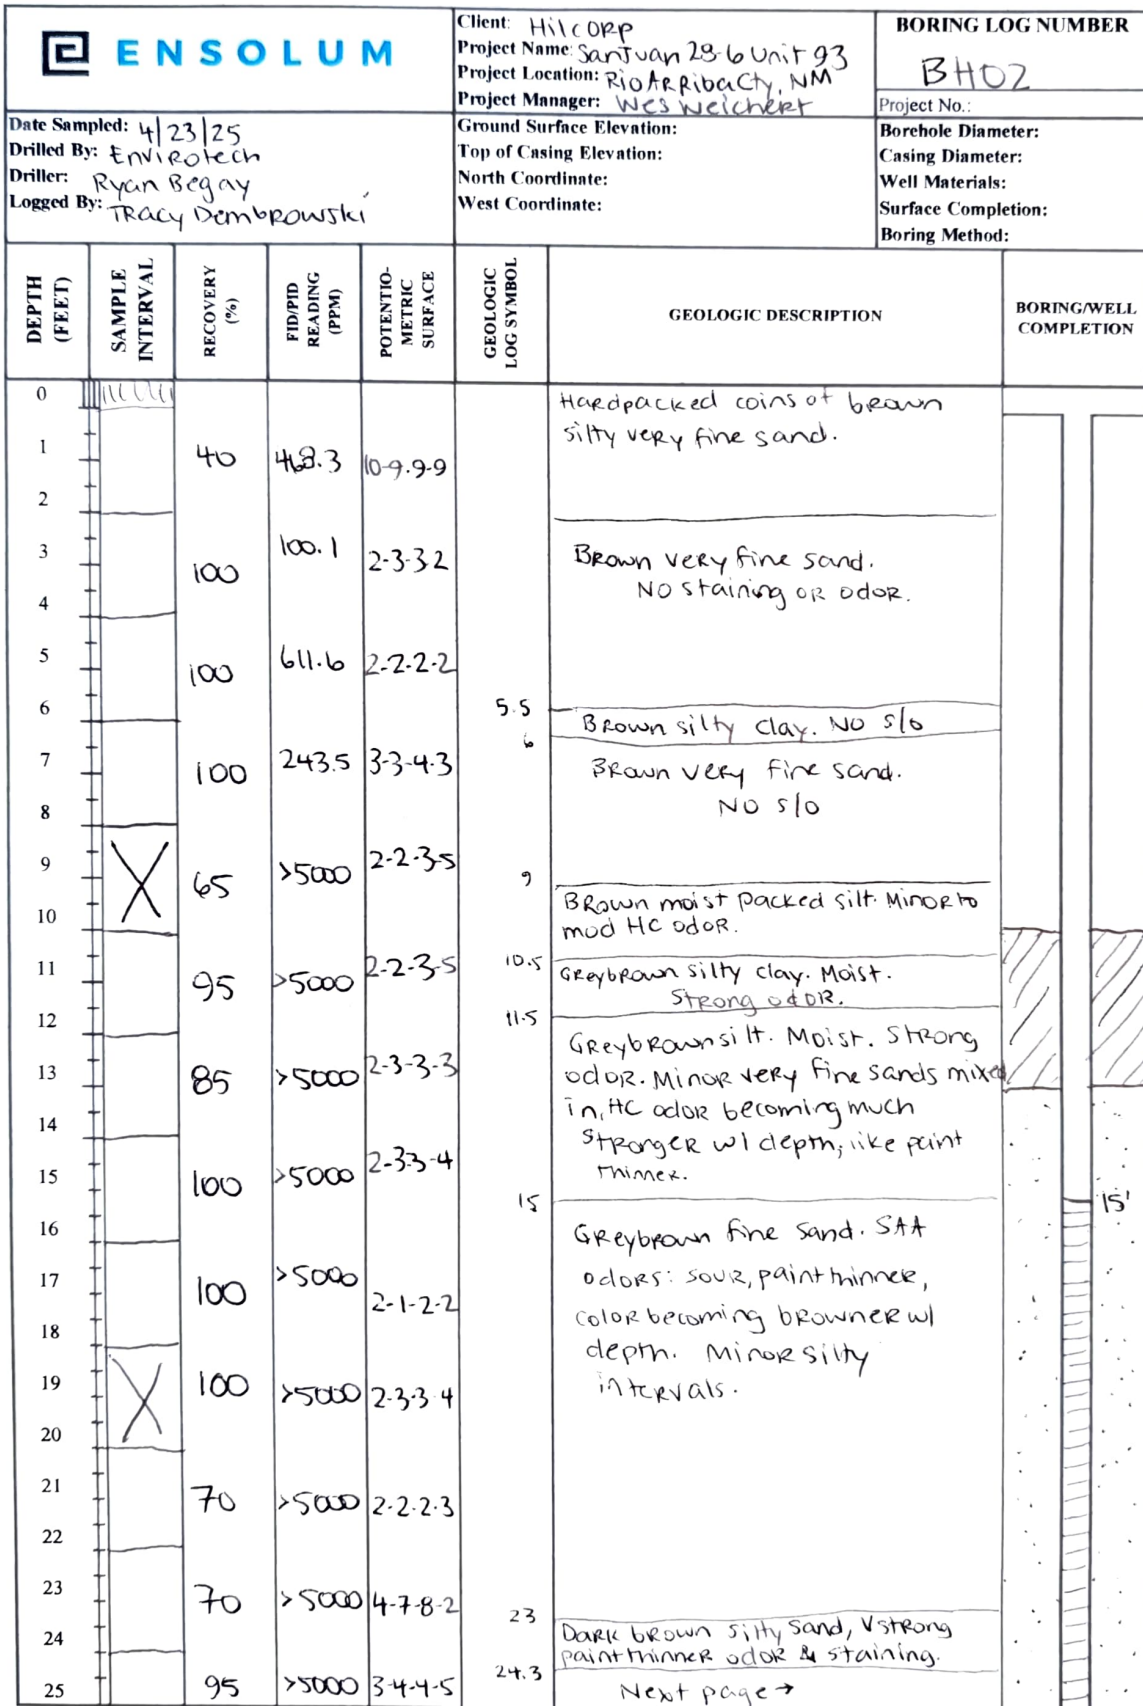 ENSOLUM
Client: Hilcorp
Project Name: SanJuan 28-6 Unit 93
Project Location: Rio Arriba Cty, NM
Project Manager: Wes Weichert
BORING LOG NUMBER
BH02
Project No.:
Date Sampled: 4/23/25
Drilled By: Envirotech
Driller: Ryan Begay
Logged By: Tracy Dembrowski
Ground Surface Elevation:
Top of Casing Elevation:
North Coordinate:
West Coordinate:
Borehole Diameter:
Casing Diameter:
Well Materials:
Surface Completion:
Boring Method:
DEPTH (FEET)
SAMPLE INTERVAL
RECOVERY (%)
FID/PID READING (PPM)
POTENTIO-METRIC SURFACE
GEOLOGIC LOG SYMBOL
GEOLOGIC DESCRIPTION
BORING/WELL COMPLETION
0
Hardpacked coins of brown
silty very fine sand.
1
40 468.3 10-9.9-9
2
3
100 100.1 2-3-3-2
Brown very fine sand.
No staining or odor.
4
5
100 611.6 2-2-2-2
6
5.5
Brown silty clay. No s/o
6
7
100 243.5 3-3-4-3
Brown very fine sand.
No s/o
8
9
65 >5000 2-2-3-5
9
Brown moist packed silt. Minor to
mod HC odor.
10
11
95 >5000 2-2-3-5
10.5
Greybrown silty clay. Moist.
Strong odor.
12
11.5
Greybrown silt. Moist. Strong
odor. Minor very fine sands mixed
in, HC odor becoming much
stronger w/ depth, like paint
thinner.
13
85 >5000 2-3-3-3
14
15
100 >5000 2-3-3-4
15
15'
16
Greybrown fine sand. SAA
odors: sour, paint thinner,
color becoming browner w/
depth. Minor silty
intervals.
17
100 >5000 2-1-2-2
18
19
100 >5000 2-3-3-4
20
21
70 >5000 2-2-2-3
22
23
70 >5000 4-7-8-2
23
Dark brown silty sand, V strong
paint thinner odor & staining.
24
24.3
25
95 >5000 3-4-4-5
Next page →